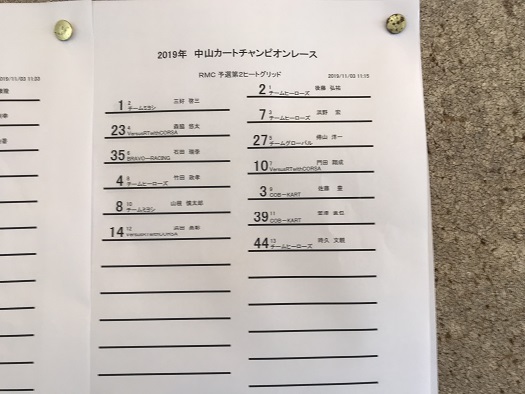 2019年 中山カートチャンピオンレース
RMC 予選第2ヒートグリッド
2019/11/03 11:20
2019/11/03 11:15
2 1 後藤 弘祐
チームヒーローズ
1 2 三好 啓三
チームミヨシ
7 3 浜野 宏
チームヒーローズ
23 4 悠太
VersusRTwithCORSA
27 5 横山 洋一
チームグローバル
35 6 石田
BRAVO-RACING
10 7 門田
VersusRTwithCORSA
4 8 竹田 政孝
チームヒーローズ
3 9 佐藤 豊
COB-KART
8 10 山根 慎太郎
チームミヨシ
39 11
COB-KART
14 12 浜田
VersusRTwithCORSA
44 13 持久 文朗
チームヒーローズ